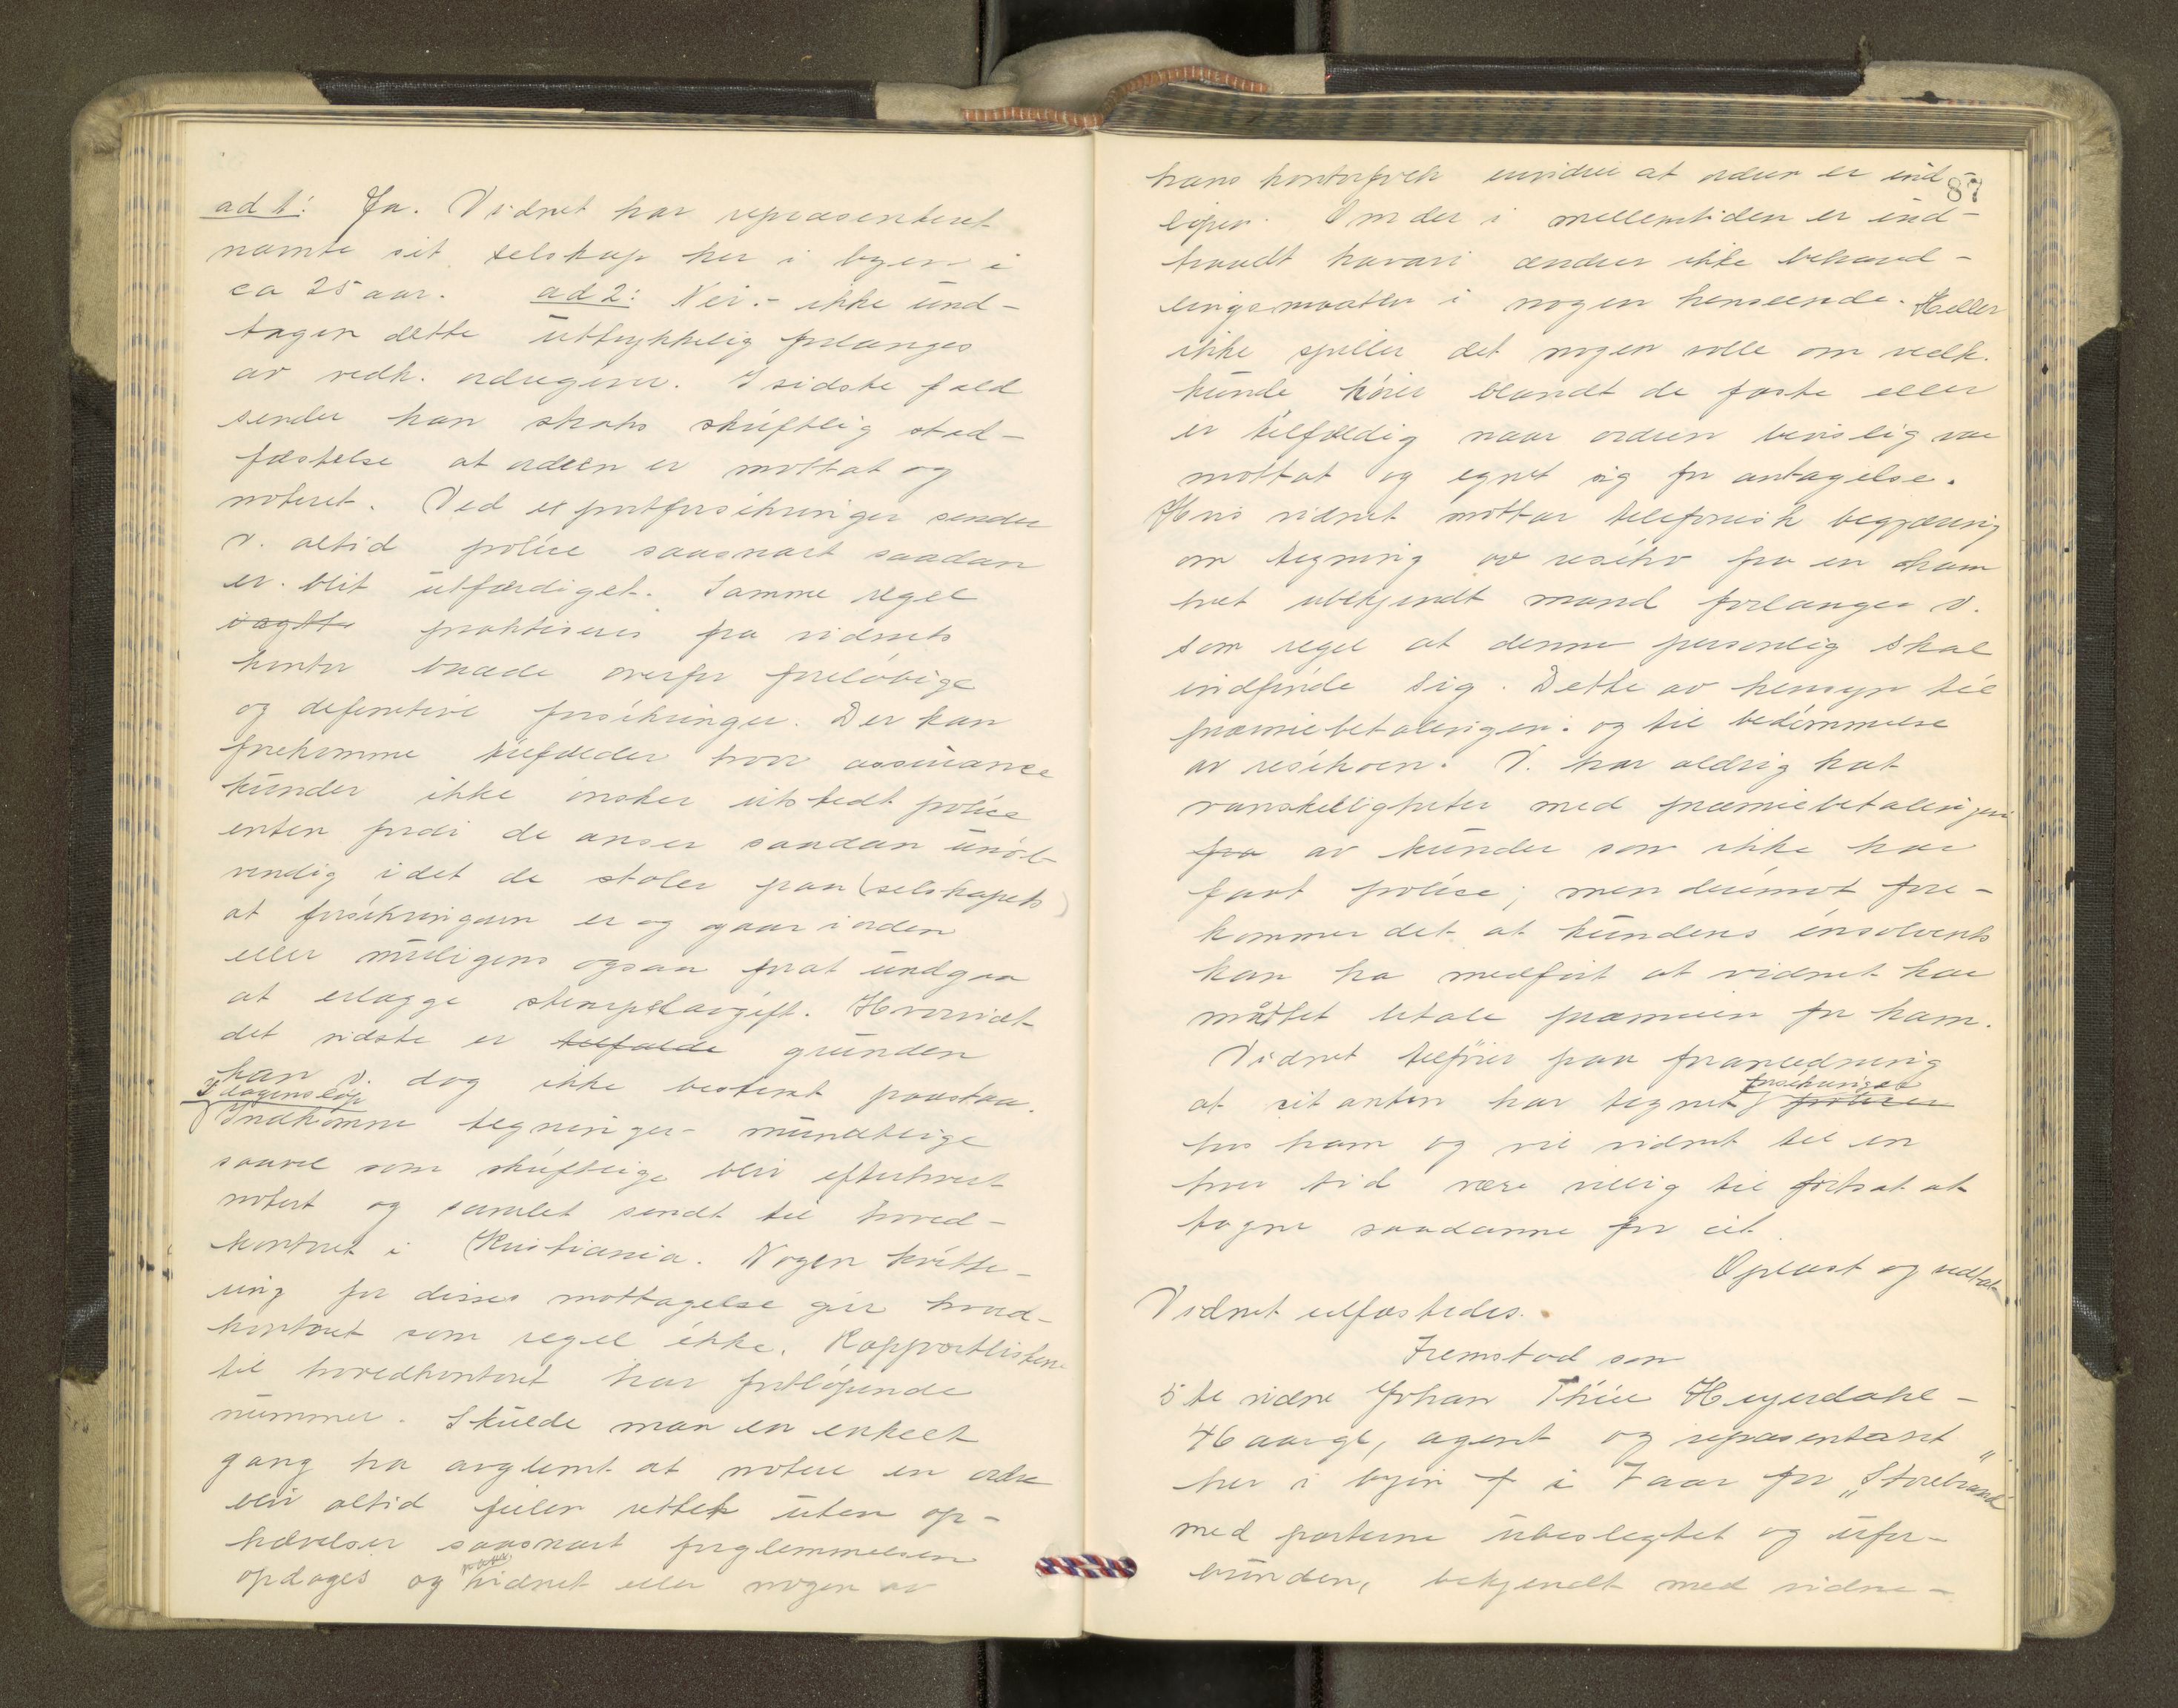 ad 1: Ja. Vidnet har repræsenteret
nævnte sit selskap her i byen i
ca 25 aar. ad 2: Nei.- ikke und-
tagen dette uttrykkelig forlanges
av vedk. ordregiver. I sidste fald
sender han straks skriftlig stad-
fæstelse at ordren er mottat og
noteret. Ved exportforsikringer sender
V. altid police saasnart saadan
er blit utfærdiget. Samme regel
praktiseres fra vidnets
kontor baade overfor foreløbige
og definitive forsikringer. Der kan
forekomme tilfælder hvor assurance
kunder ikke ønsker utstedt police
enten fordi de anser saadan unød-
vendig idet de stoler paa (selskapets)
at forsikringen er og gaar i orden
eller muligens ogsaa for at undgaa
at erlægge stempelavgift. Hvorvidt
det sidste er tilfælde grunden
kan v. dog ikke bestemt paastaa.
I dagens løp
Indkomne tegninger mundtlige
saavel som skriftlige blir efterhvert
notert og samlet sendt til hoved-
kontoret i Kristiania. Nogen kvitte-
ring for disses mottagelse gir hoved-
kontoret som regel ikke. Rapportlistene
til hovedkontoret har fortløpende
nummer. Skulde man en enkelt
gang ha avglemt at notere en ordre
blir altid feilen rettet uten op-
hævelser saasnart forglemmelsen
opdages og vidnet eller nogen av
87
hans kontorfolk erindrer at ordren er ind-
løpen. Om der i mellemtiden er ind-
traadt havari ændrer ikke behand-
lingsmaaten i nogen henseende. Heller
ikke spiller det nogen rolle om vedk.
kunde hører blandt de faste eller
er tilfældig naar ordren bevislig var
mottat og egnet sig for antagelse.
Hvis vidnet mottar telefonisk begjæring
om tegning av risiko fra en ham
helt ubekjendt mand forlanger v.
som regel at denne personlig skal
indfinde sig. Dette av hensyn til
præmiebetalingen. og til bedømmelse
av risikoen. V. har aldrig hat
vanskeligheter med præmiebetalingen
fra av kunder som ikke har
faat police; men derimot fore-
kommer det at kundens insolvents
kan ha medført at vidnet har
måttet betale præmien for ham.
Vidnet tilføier paa foranledning
forsikringer
at citanten har tegnet policer
hos ham og vil vidnet til en
hver tid være villig til fortsat at
tegne saadanne for cit.
Oplæst og vedtat
Vidnet edfæstedes.
Fremstod som
5te vidne Johan Thiis Heyerdahl -
46 aar gl, agent og repræsentant
her i byen f i 7 aar for "Storebrand"
med parterne ubeslegtet og ufor-
bunden, bekjendt med vidne-